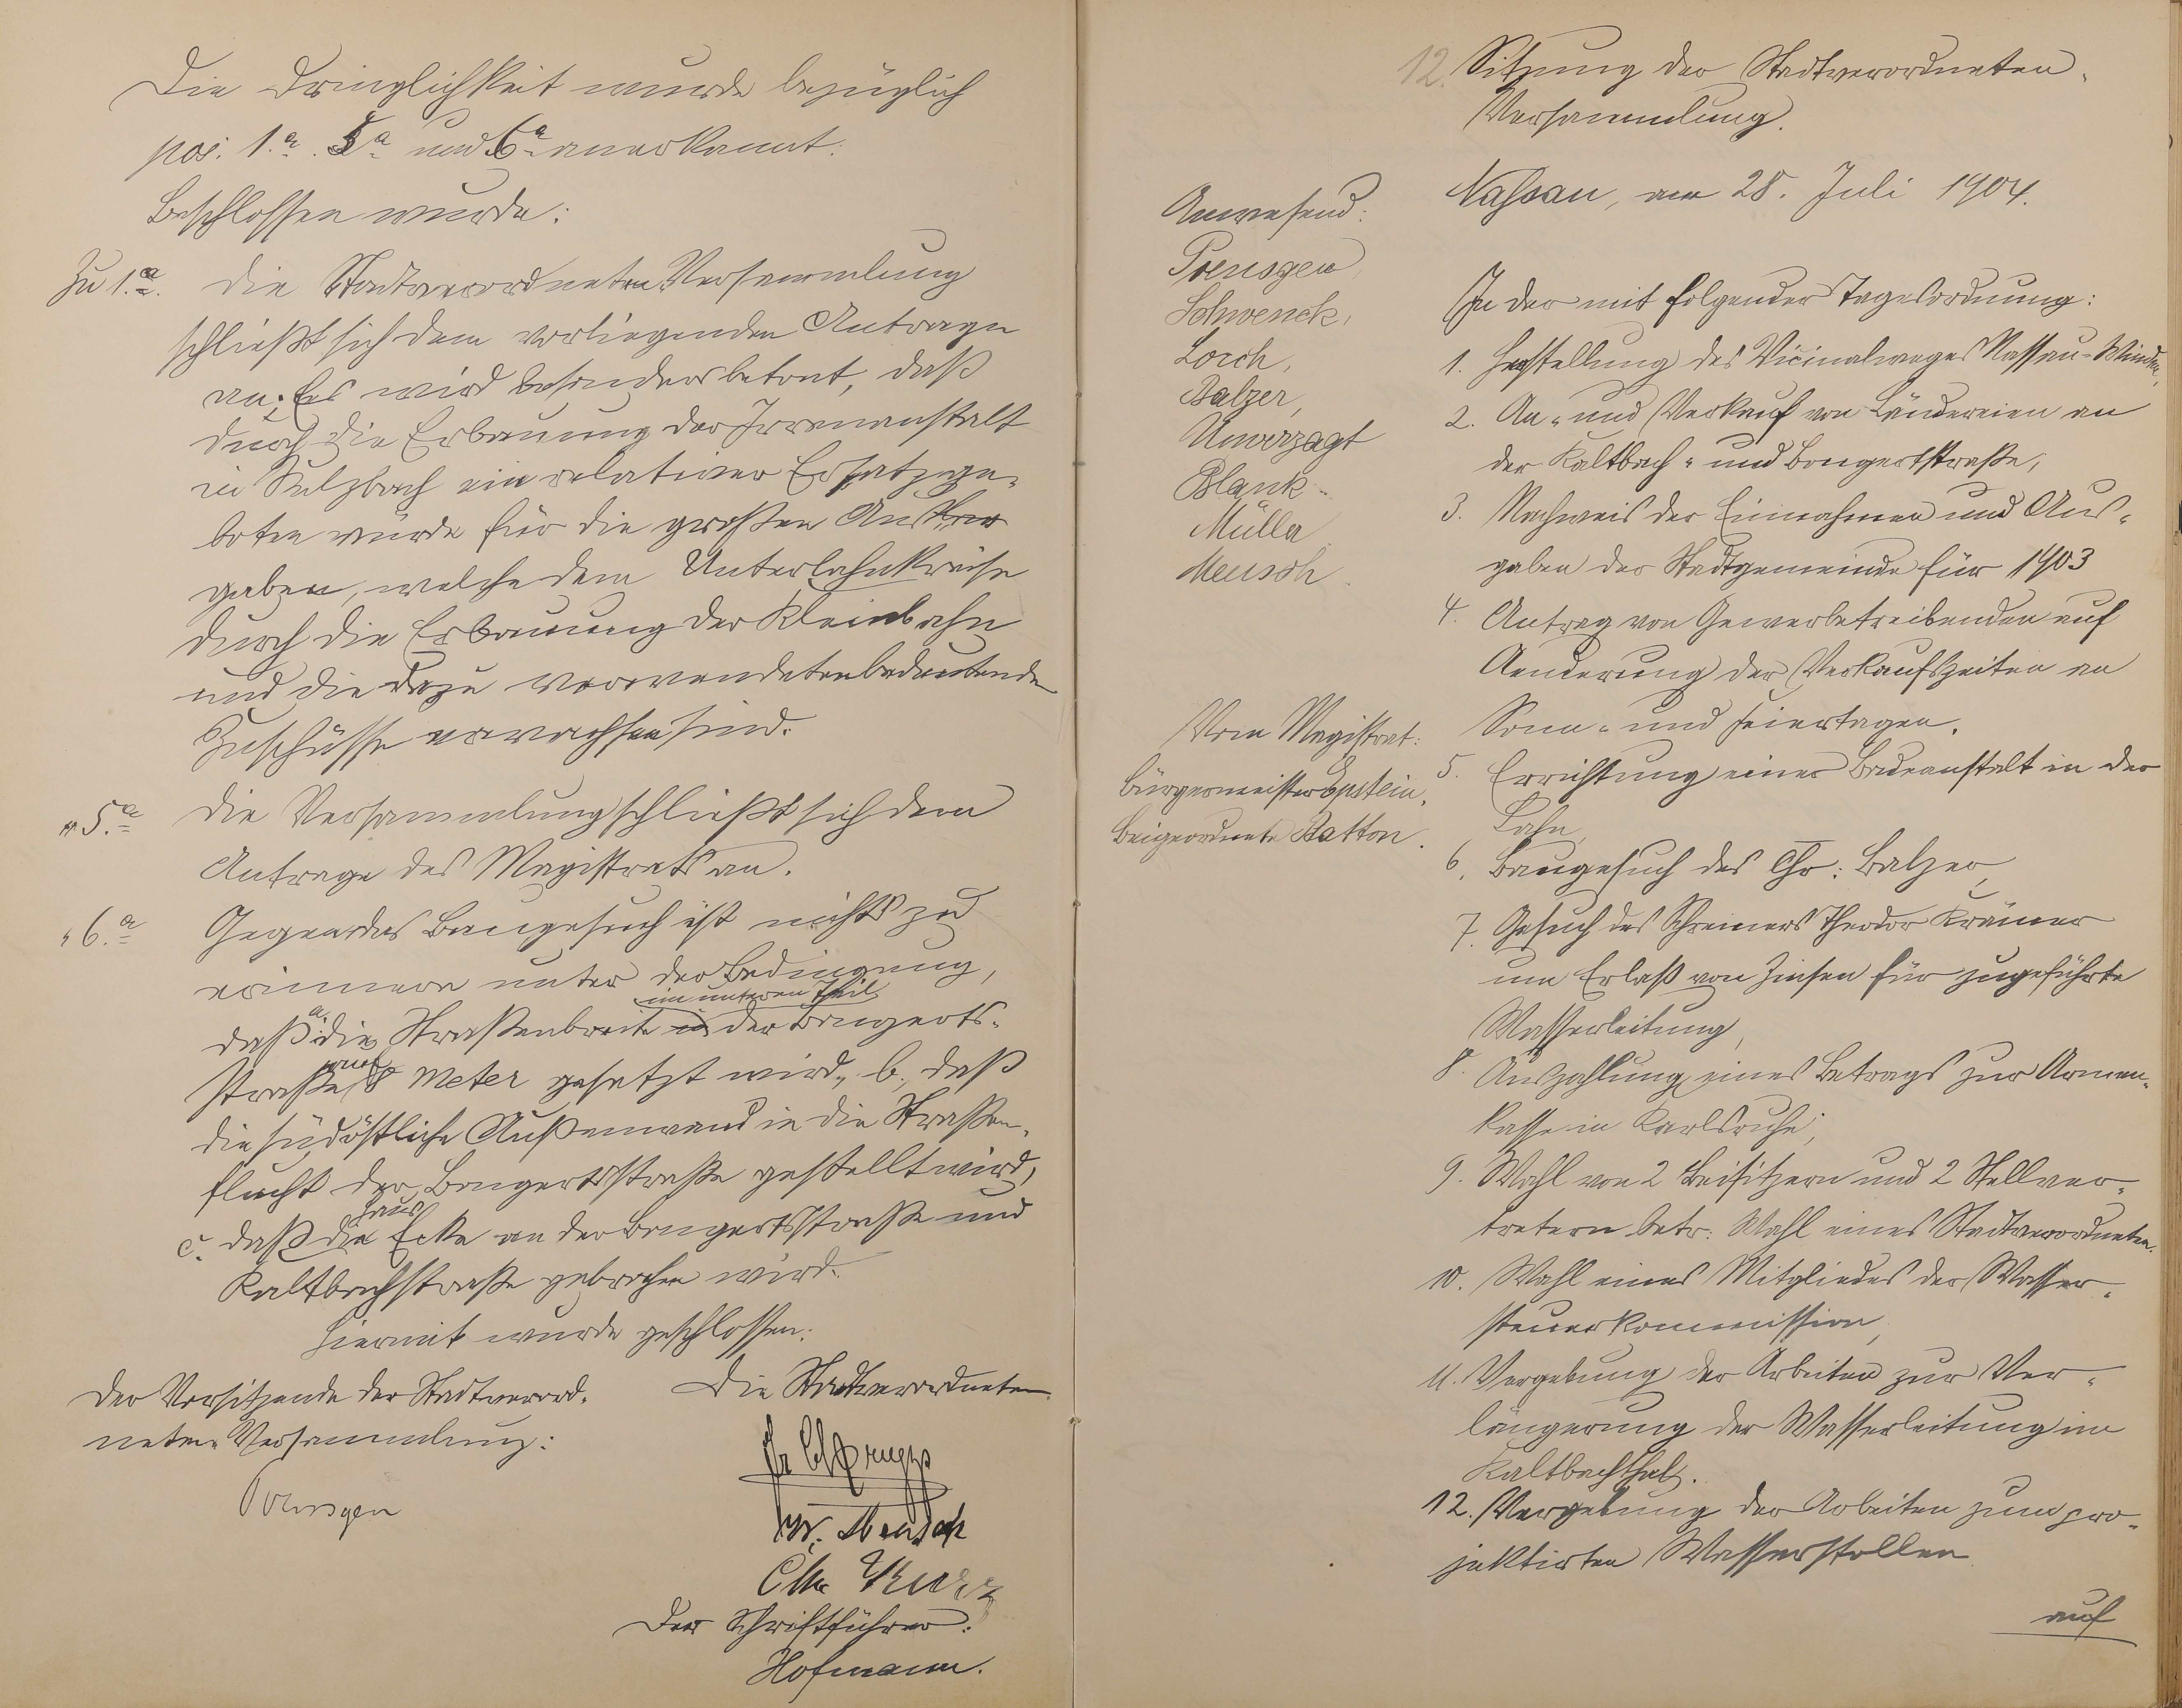 Die Dringlichkeit wurde bezüglich
pos. 1.a 5a und 6a anerkannt.
Beschlossen wurde:
Zu 1.a. Die Stadtverordneten-Versammlung
schließt sich dem vorliegenden Antrage
an. Es wird besonders betont, daß
durch die Erbauung der Irrenanstalt
in Sulzbach ein relativer Ersatz ge-
boten würde für die großen Aus-
gaben, welche dem Unterlahnkreise
durch die Erbauung der Kleinbahn
und die dazu verwendeten bedeutende
Zuschüsse erwachsen sind.
" 5.a Die Versammlung schließt sich dem
Antrage des Magistrats an.
" 6.a Gegen das Baugesuch ist nichts zu
erinnern unter der Bedingung,
im unteren Theil
daß a. die Straßenbreite der Bongerts-
straße auf 8 Meter gesetzt wird, b. daß
die südöstliche Außenwand in die Straßen-
flucht der Bongertsstraße gestellt wird,
c. daß die Haus Ecke an der Bongertsstraße und
Kaltbachstraße gebrochen wird.
Hiermit wurde geschlossen.
Der Vorsitzende der Stadtverord-
neten-Versammlung:
Poensgen
Die Stadtverordneten
W. Meusch
Chr
Der Schriftführer:
Hofmann.
12. Sitzung der Stadtverordneten-
Versammlung.
Nassau, am 28. Juli 1904.
Anwesend:
Poensgen,
Schwenck,
Lorch,
Balzer,
Unverzagt
Blank
Müller
Meusch
Vom Magistrat:
Bürgermeister Epstein,
Beigeordnete Batton.
In der mit folgender Tagesordnung:
1. Herstellung des Vicinalweges Nassau-Winden,
2. An- und Verkauf von Ländereien an
der Kaltbach- und Bongertstraße,
3. Nachweis der Einnahmen und Aus-
gaben der Stadtgemeinde für 1903
4. Antrag von Gewerbetreibenden auf
Aenderung der Verkaufszeiten an
Sonn- und Feiertagen.
5. Errichtung einer Badeanstalt in der
Lahn,
6. Baugesuch des Chr. Balzer,
7. Gesuch des Schreiners Theodor Krämer
um Erlaß von Zinsen für zugeführte
Wasserleitung,
8. Auszahlung eines Betrags zur Armen-
kasse in Karlsruhe,
9. Wahl von 2 Beisitzern und 2 Stellver-
tretern betr. Wahl eines Stadtverordneten.
10. Wahl eines Mitgliedes der Wasser-
steuerkommission,
11. Vergebung der Arbeiten zur Ver-
längerung der Wasserleitung im
Kaltbachthal.
12. Vergebung der Arbeiten zum pro-
jektirten Wasserstollen
auf